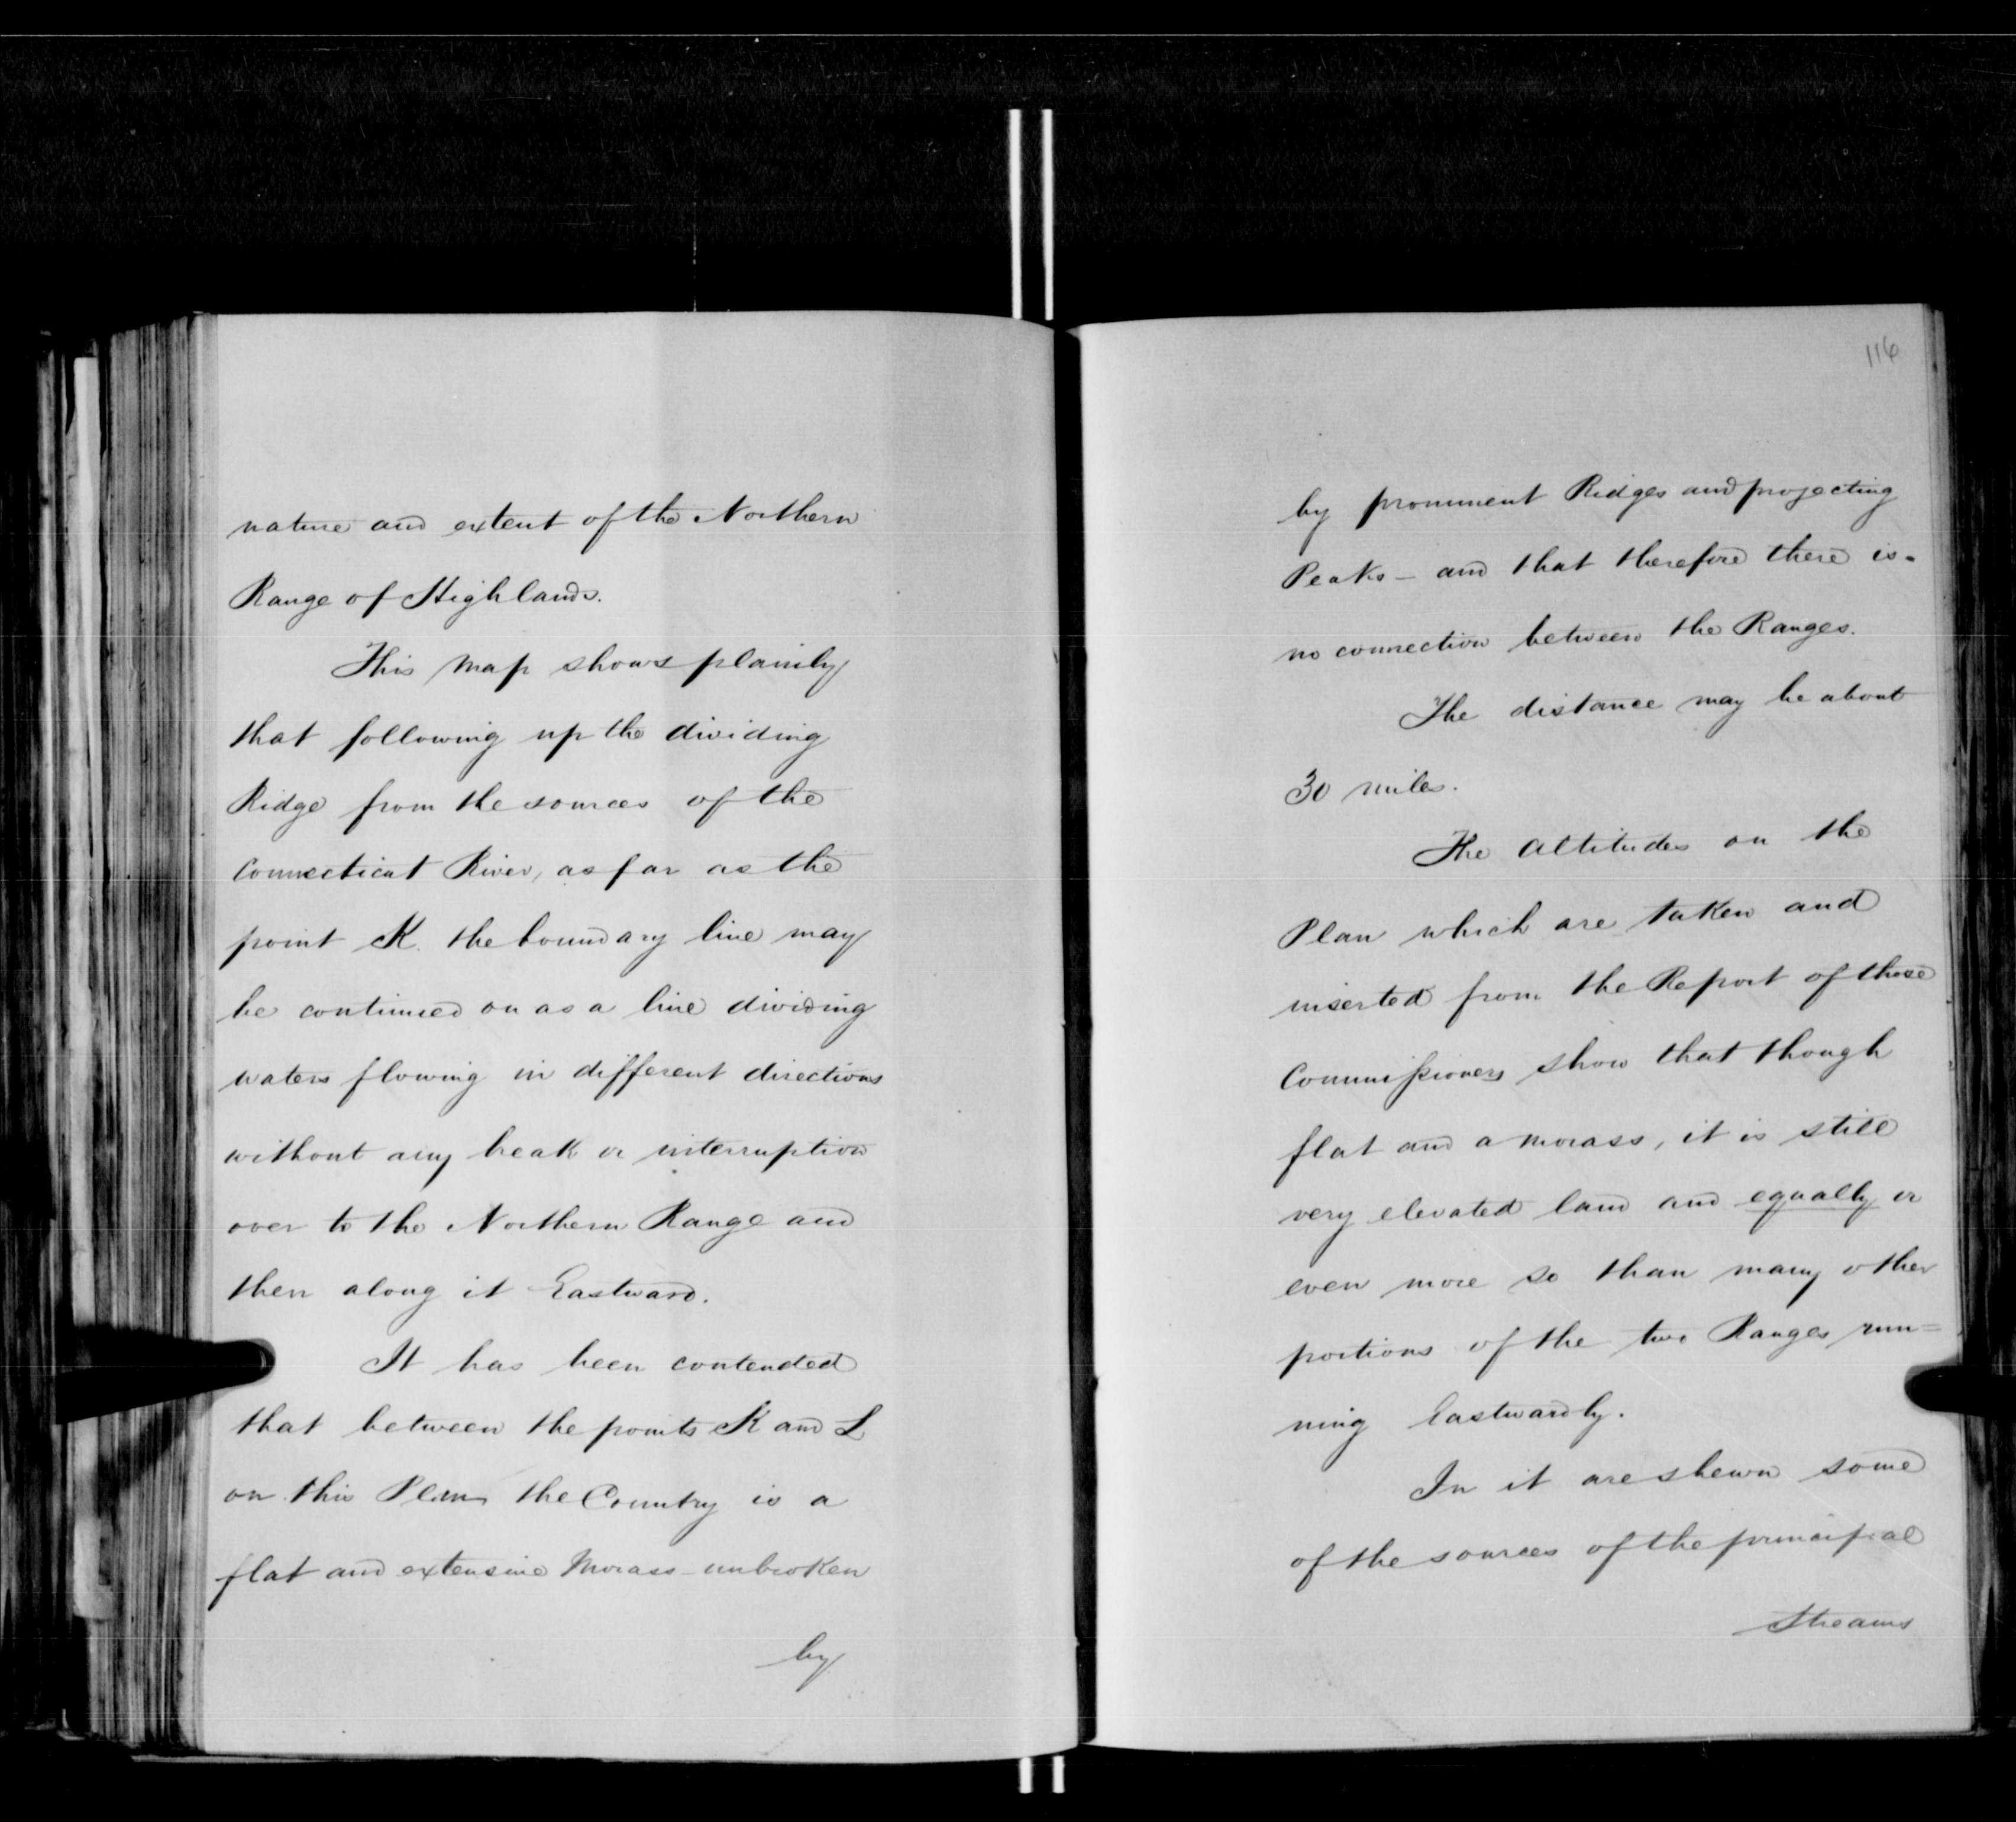 nature and extent of the Northern
Range of Highlands.
This Map shows plainly
that following up the dividing
Ridge from the sources of the
Connecticut River, as far as the
point K. the boundary line may
be continued on as a line dividing
waters flowing in different directions
without any beak or interruption
over to the Northern Range and
then along it Eastward.
It has been contended
that between the points K and L
on this Plan the Country is a
flat and extensive Morass - unbroken
by
116
by prominent Ridges and projecting
Peaks - and that therefore there is -
no connection between the Ranges.
The distance may be about
30 miles.
The altitudes on the
Plan which are taken and
inserted from the Report of those
Commissioners show that though
flat and a morass, it is still
very elevated land and equally or
even more so than many other
portions of the two Ranges run=
ning Eastwardly.
In it are shewn some
of the sources of the principal
Streams